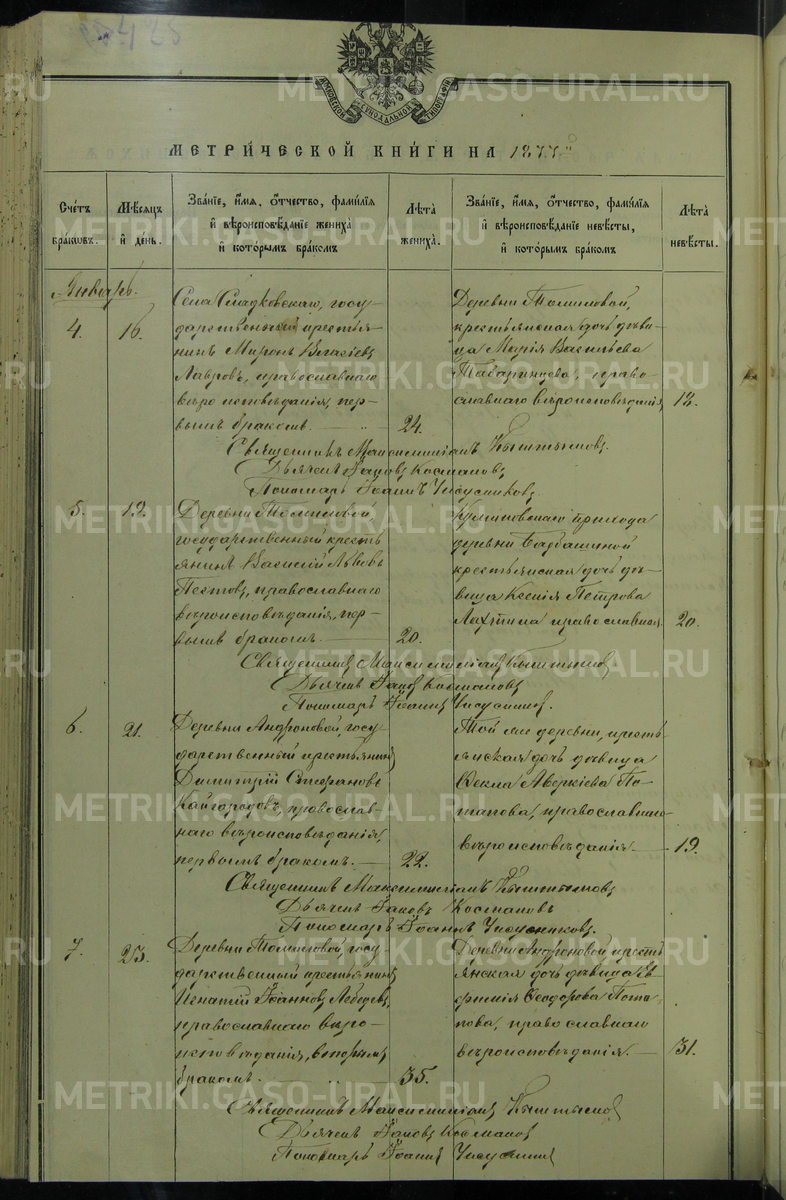 МЕТРИЧЕСКОЙ КНИГИ НА 1877
Счетъ браковъ.
Мѣсяцъ и день.
Званіе, имя, отчество, фамилія
и вѣроисповѣданіе жениха
и которымъ бракомъ
Лѣта жениха.
Званіе, имя, отчество, фамилія
и вѣроисповѣданіе невѣсты,
и которымъ бракомъ
Лѣта невѣсты.
Январь.
4. 16.
Села Сладковскаго, госу-
дарственный крестья-
нинъ Миронъ
Лавровъ, православнаго
вѣроисповѣданія, пер-
вымъ бракомъ. 24.
Деревни Томиловой,
крестьянская дочь дѣви-
ца Марія Васильева
Табаринцева, право-
славнаго вѣроисповѣданія 18.
Священникъ Максимиліанъ Кыштымовъ
Дьячекъ Іаковъ Космаковъ
Пономарь Іоаннъ
5. 19.
Деревни Томиловой,
государственный кресть-
янинъ Василій Львовъ
Пестовъ, православнаго
вѣроисповѣданія, пер-
вымъ бракомъ. 20.
прихода
деревни Бабашиной
крестьянская дочь дѣ-
вица Ксенія Петрова
Лахтина православная 20.
Священникъ Максимиліанъ Кыштымовъ
Дьячекъ Іаковъ Космаковъ
Пономарь Іоаннъ
6. 21.
Деревни Андроновой, госу-
дарственный крестьянинъ
Димитрій Стефановъ
Кайгородовъ, православ-
наго вѣроисповѣданія,
первымъ бракомъ. 22.
Той же деревни, кресть-
янская дочь дѣвица
Фекла Аверкіева По-
тапова, православнаго
вѣроисповѣданія. 19.
Священникъ Максимиліанъ Кыштымовъ
Дьячекъ Іаковъ Космаковъ
Пономарь Іоаннъ
7. 23.
Деревни Томиловой, госу-
дарственный крестьянинъ
Игнатій Іоанновъ Лебедевъ,
православнаго вѣро-
исповѣданія, вторымъ
бракомъ. 35.
Деревни Андроновой кресть-
янская дочь дѣвица Ев-
фимія Феодорова Пота-
пова, православнаго
вѣроисповѣданія. 31.
Священникъ Максимиліанъ Кыштымовъ
Дьячекъ Іаковъ Космаковъ
Пономарь Іоаннъ
METRIKI.GASO-URAL.RU